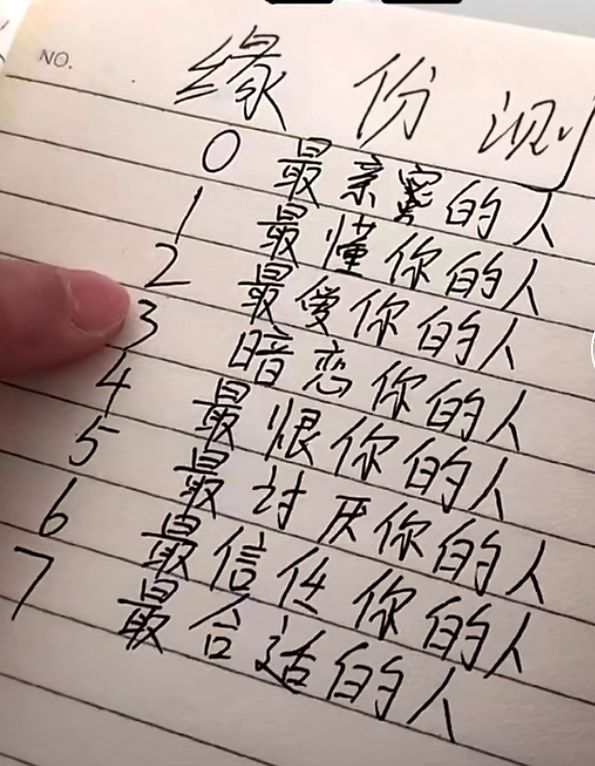 NO.
缘份测
0 最亲密的人
1 最懂你的人
2 最爱你的人
3 暗恋你的人
4 最恨你的人
5 最讨厌你的人
6 最信任你的人
7 最合适的人